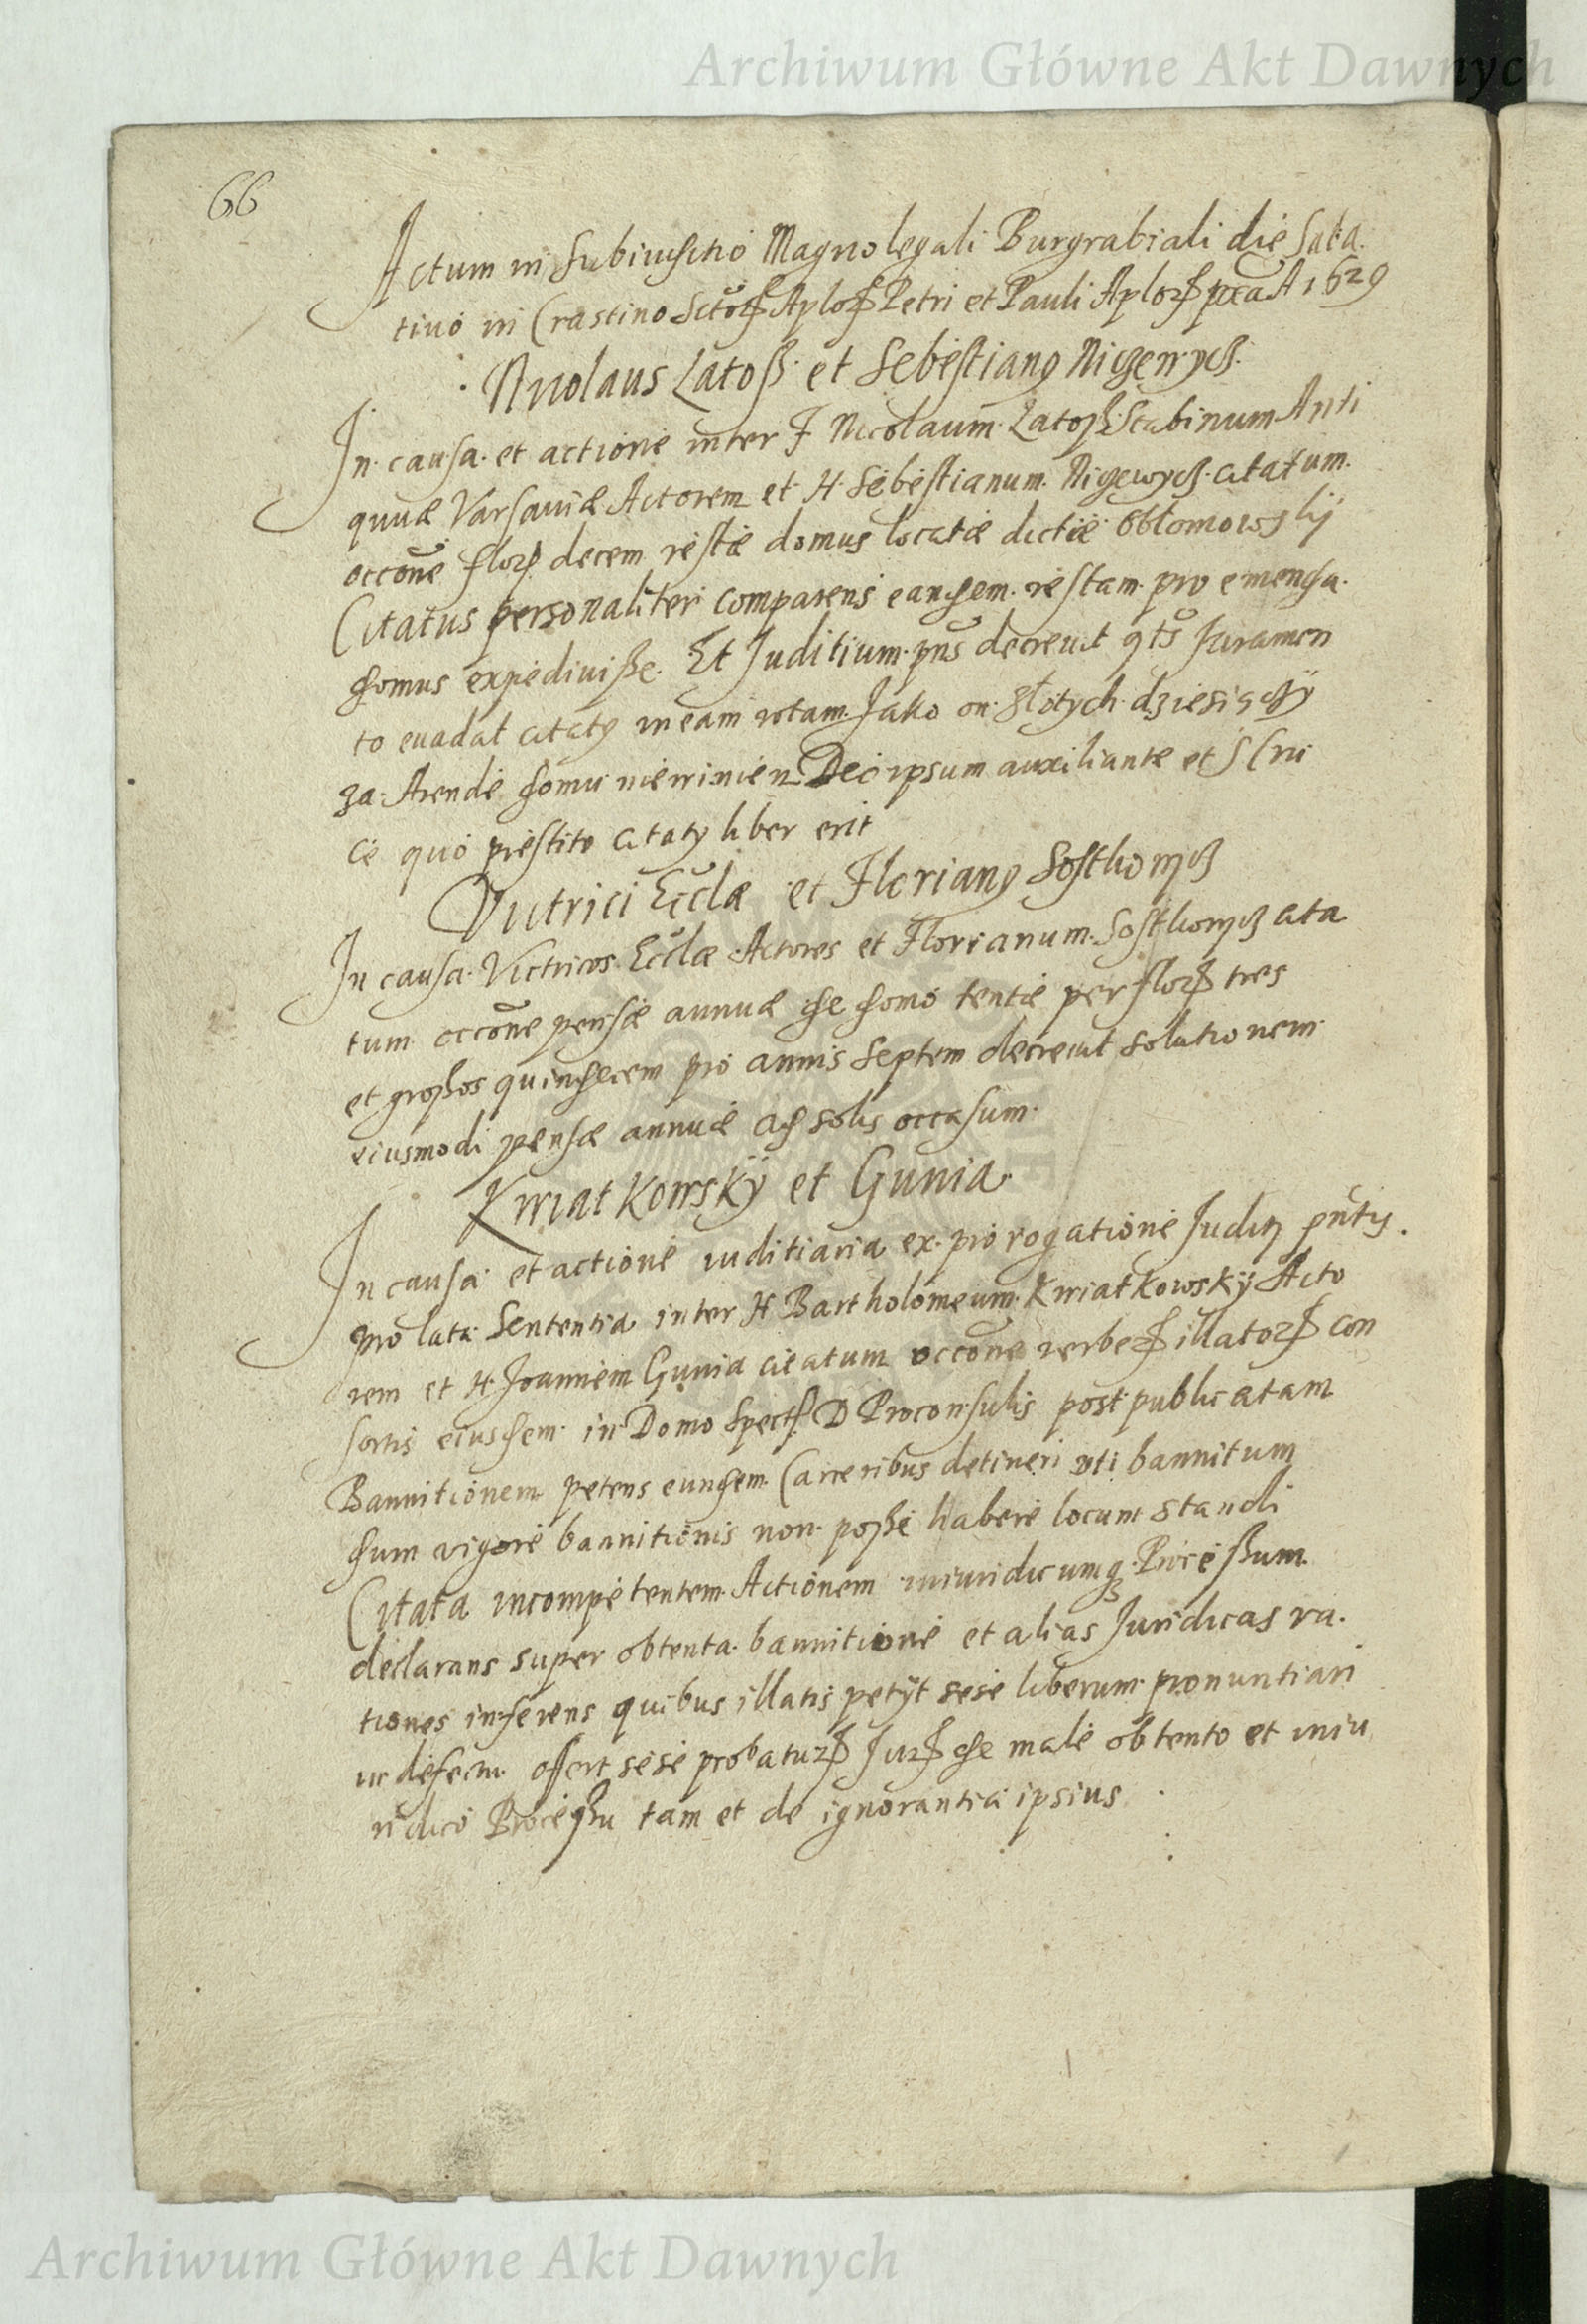 Archiwum Główne Akt Dawnych
66
Actum in Judicio Magno legali Burgrabiali die Saba
tivo in Crastino Sctorꝝ Aploꝝ Petri et Pauli Aploꝝ A 1629
Nicolaus Latoß et Sebestianꝰ
In causa et actione inter F Nicolaum Latosz Scabinum Anti
quae Varsaviae Actorem et H Sebestianum citatum
occone floꝝ decem restae domus locatae dictae
Citatus personaliter comparens eandem restam pro emenda
domus expedivisse. Et Juditium pns decrevit qts Juramen
to evadat citatꝰ in eam rotam Jako on złotych dziesiąci
za Arende domu niewinien Deo ipsum auxiliante et S Cru
ce quo prestito citatꝰ liber erit
Vitrici Ecclae et Florianꝰ
In causa Victricos Ecclae Actores et Florianum cita
tum occone pensae annuae de domo tentae per floꝝ tres
et großos quindecem pro annis septem decrevit solutionem
eiusmodi pensae annuae ad solis occasum
Kwiatkowskÿ et Gunia
In causa et actione iuditiaria ex prorogatione Judicij pntis
prolata Sententia inter H Bartholomeum Kwiatkowskÿ Acto
rem et H Joannem Gunia citatum occone verbeꝝ illatoꝝ con
sortis eiusdem in Domo Spectꝭ D Proconsulis post publicatam
Bannitionem petens eundem Carceribus detineri uti bannitum
dum vigore bannitionis non poße habere locum standi
Citata incompetentem Actionem iniuridicumqꝫ Proceßum
declarans super obtenta bannitione et alias Juridicas ra
tiones inferens quibus illatis petÿt sese liberum pronuntiari
in offert sese probatuꝝ Juꝝ de male obtento et iniu
ridico Proceßu tam et de ignorantia ipsius
Archiwum Główne Akt Dawnych